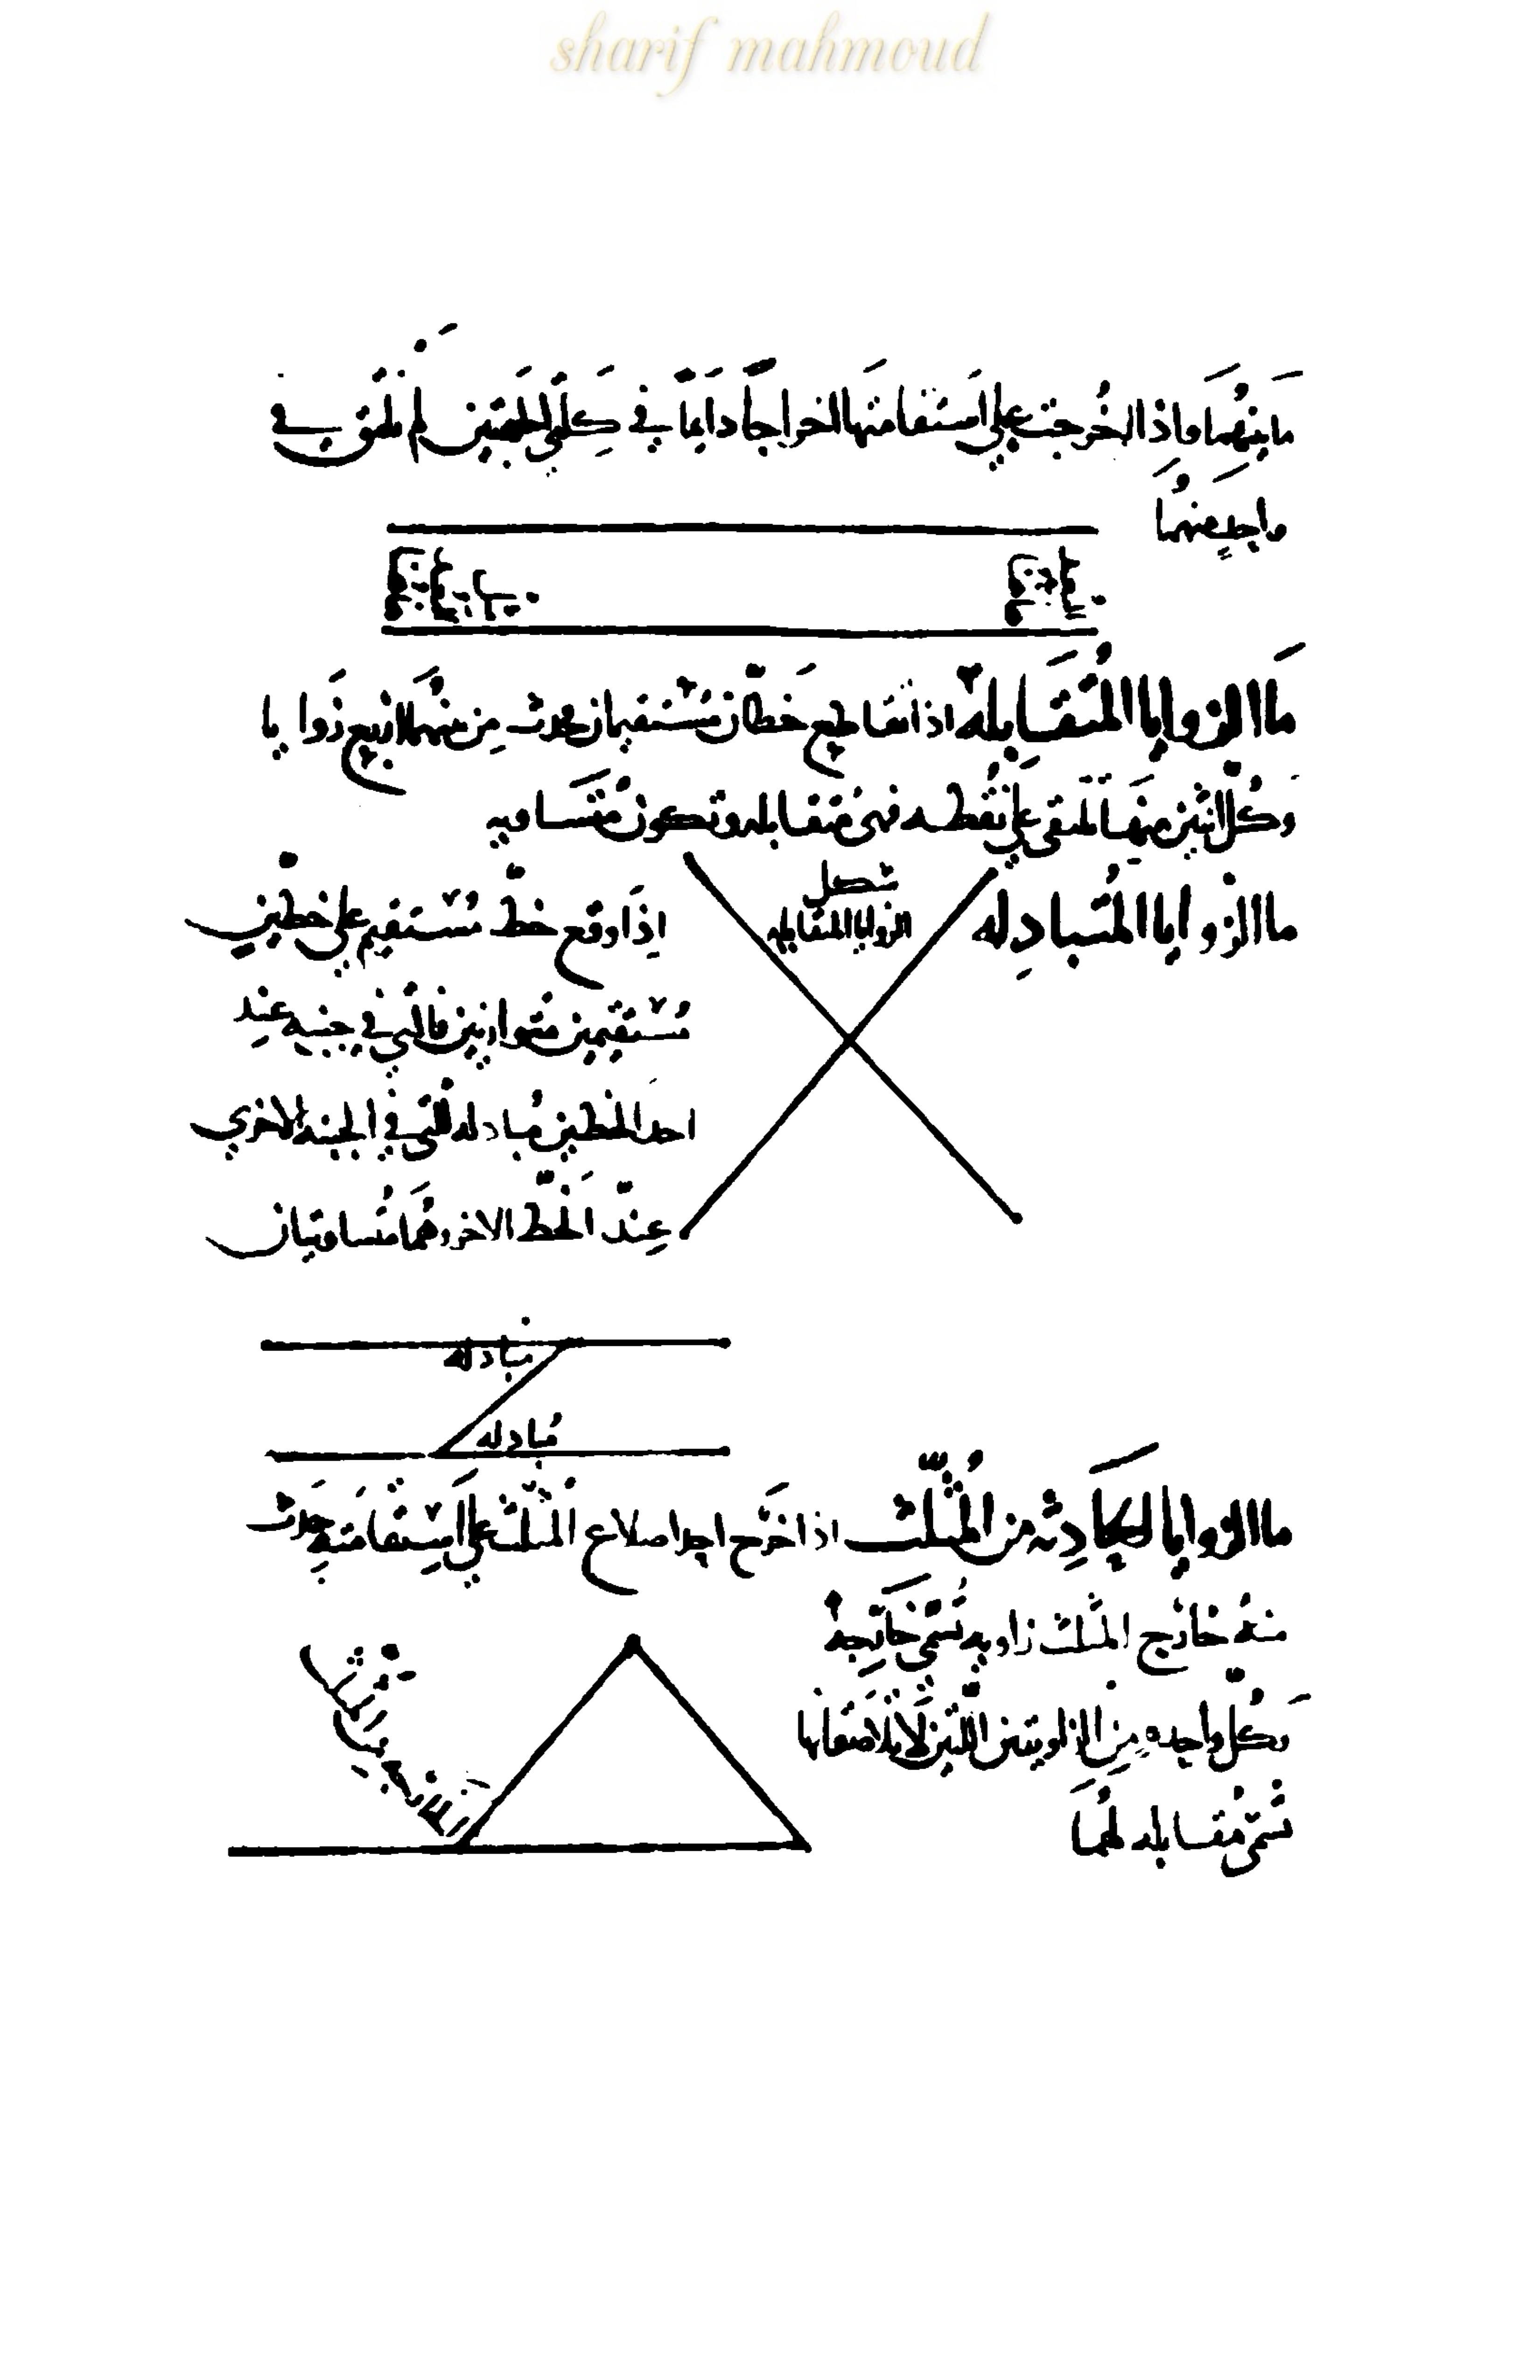 sharif mahmoud
ما بينهما واذا اخرجت على استقامتها اخراجًا دايمًا في كلتي الجهتين لم تلتق في
واحدٍ منهما
ما الزوايا المتقابلة اذا تقاطع خطّان مستقيمان يحدث من بينهما اربع زوايا
وكلّ اثنتين منها تلتقي على نقطه فهي متقابله وتكون متساويه
شكل
الزوايا المتقابله
ما الزوايا المتبادله
اذا وقع خطّ مستقيم على خطين
مستقيمين متوازيين فالتي في جنبه عند
احد الخطين مُبادله للتي في الجنبه الاخري
عند الخطّ الاخر وهما متساويتان
مُبادله
مُبادله
ما الزوايا الحادثه من المثلّث اذا اخرج احد اضلاع المثلث على استقامته حدث
منه خارج المثلث زاويه تسمّى خارجة
وكلّ واحده من الزاويتين اللتين لا تلاصقانها
تسمّى مقابله لهما